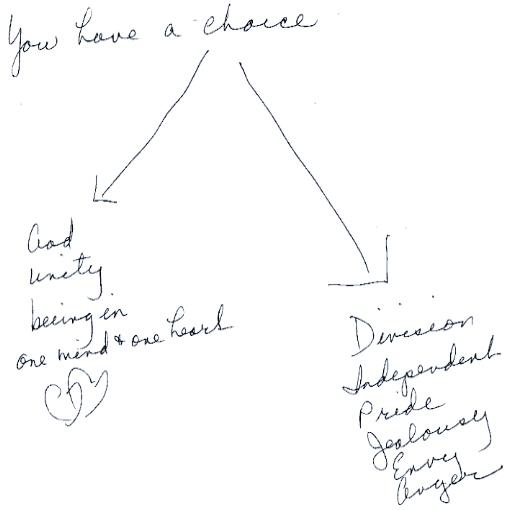 You have a choice
God
unity
being in
one mind & one heart
Division
Independent
Pride
Jealousy
Envy
Anger